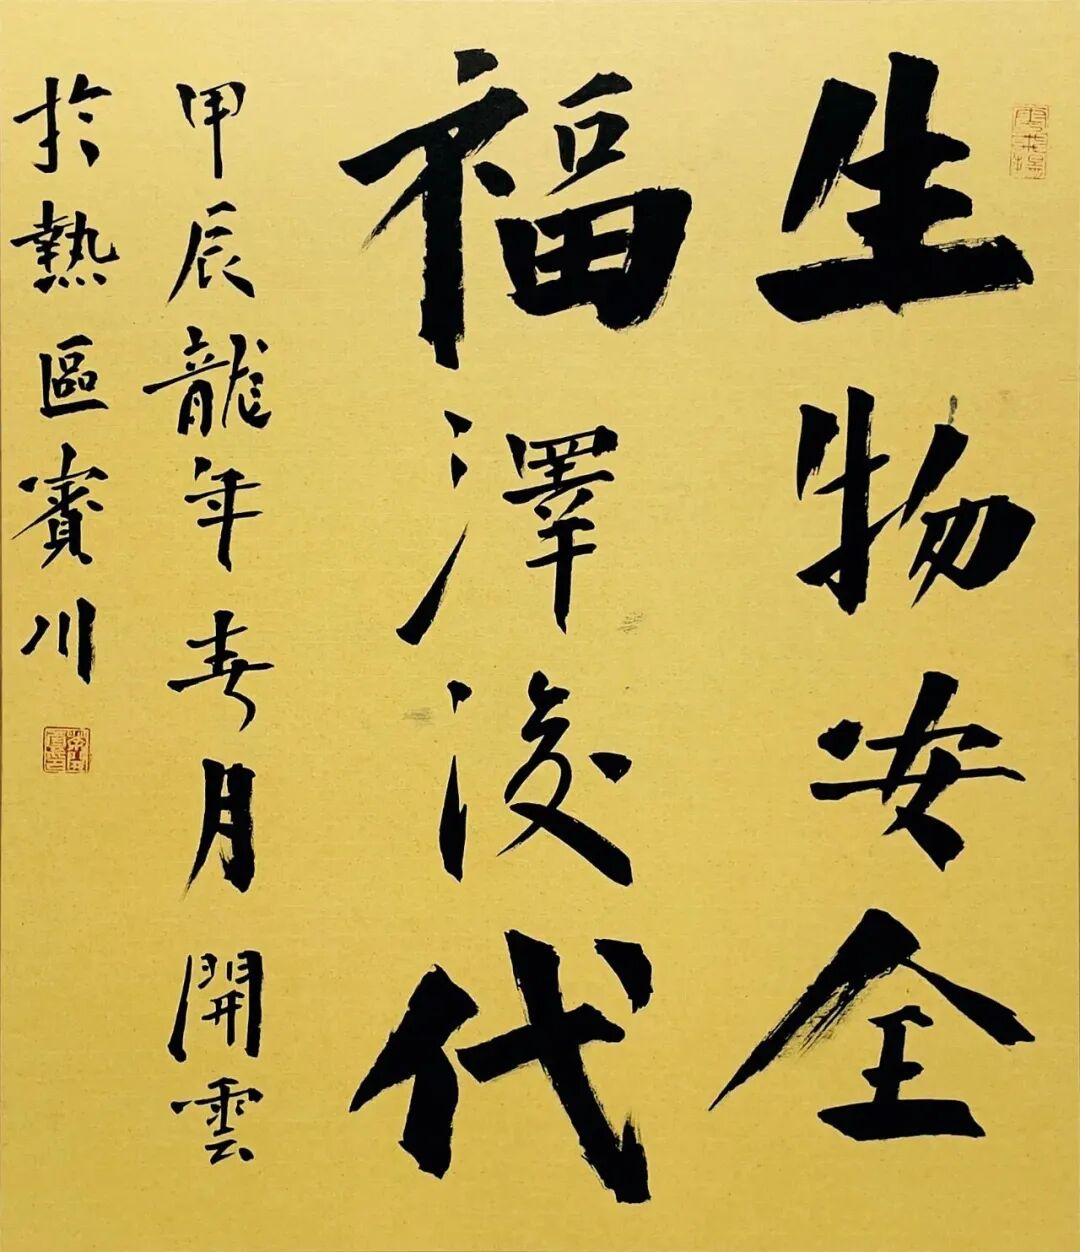 生物安全
福澤後代
甲辰龍年春月開雲
於熱區賓川